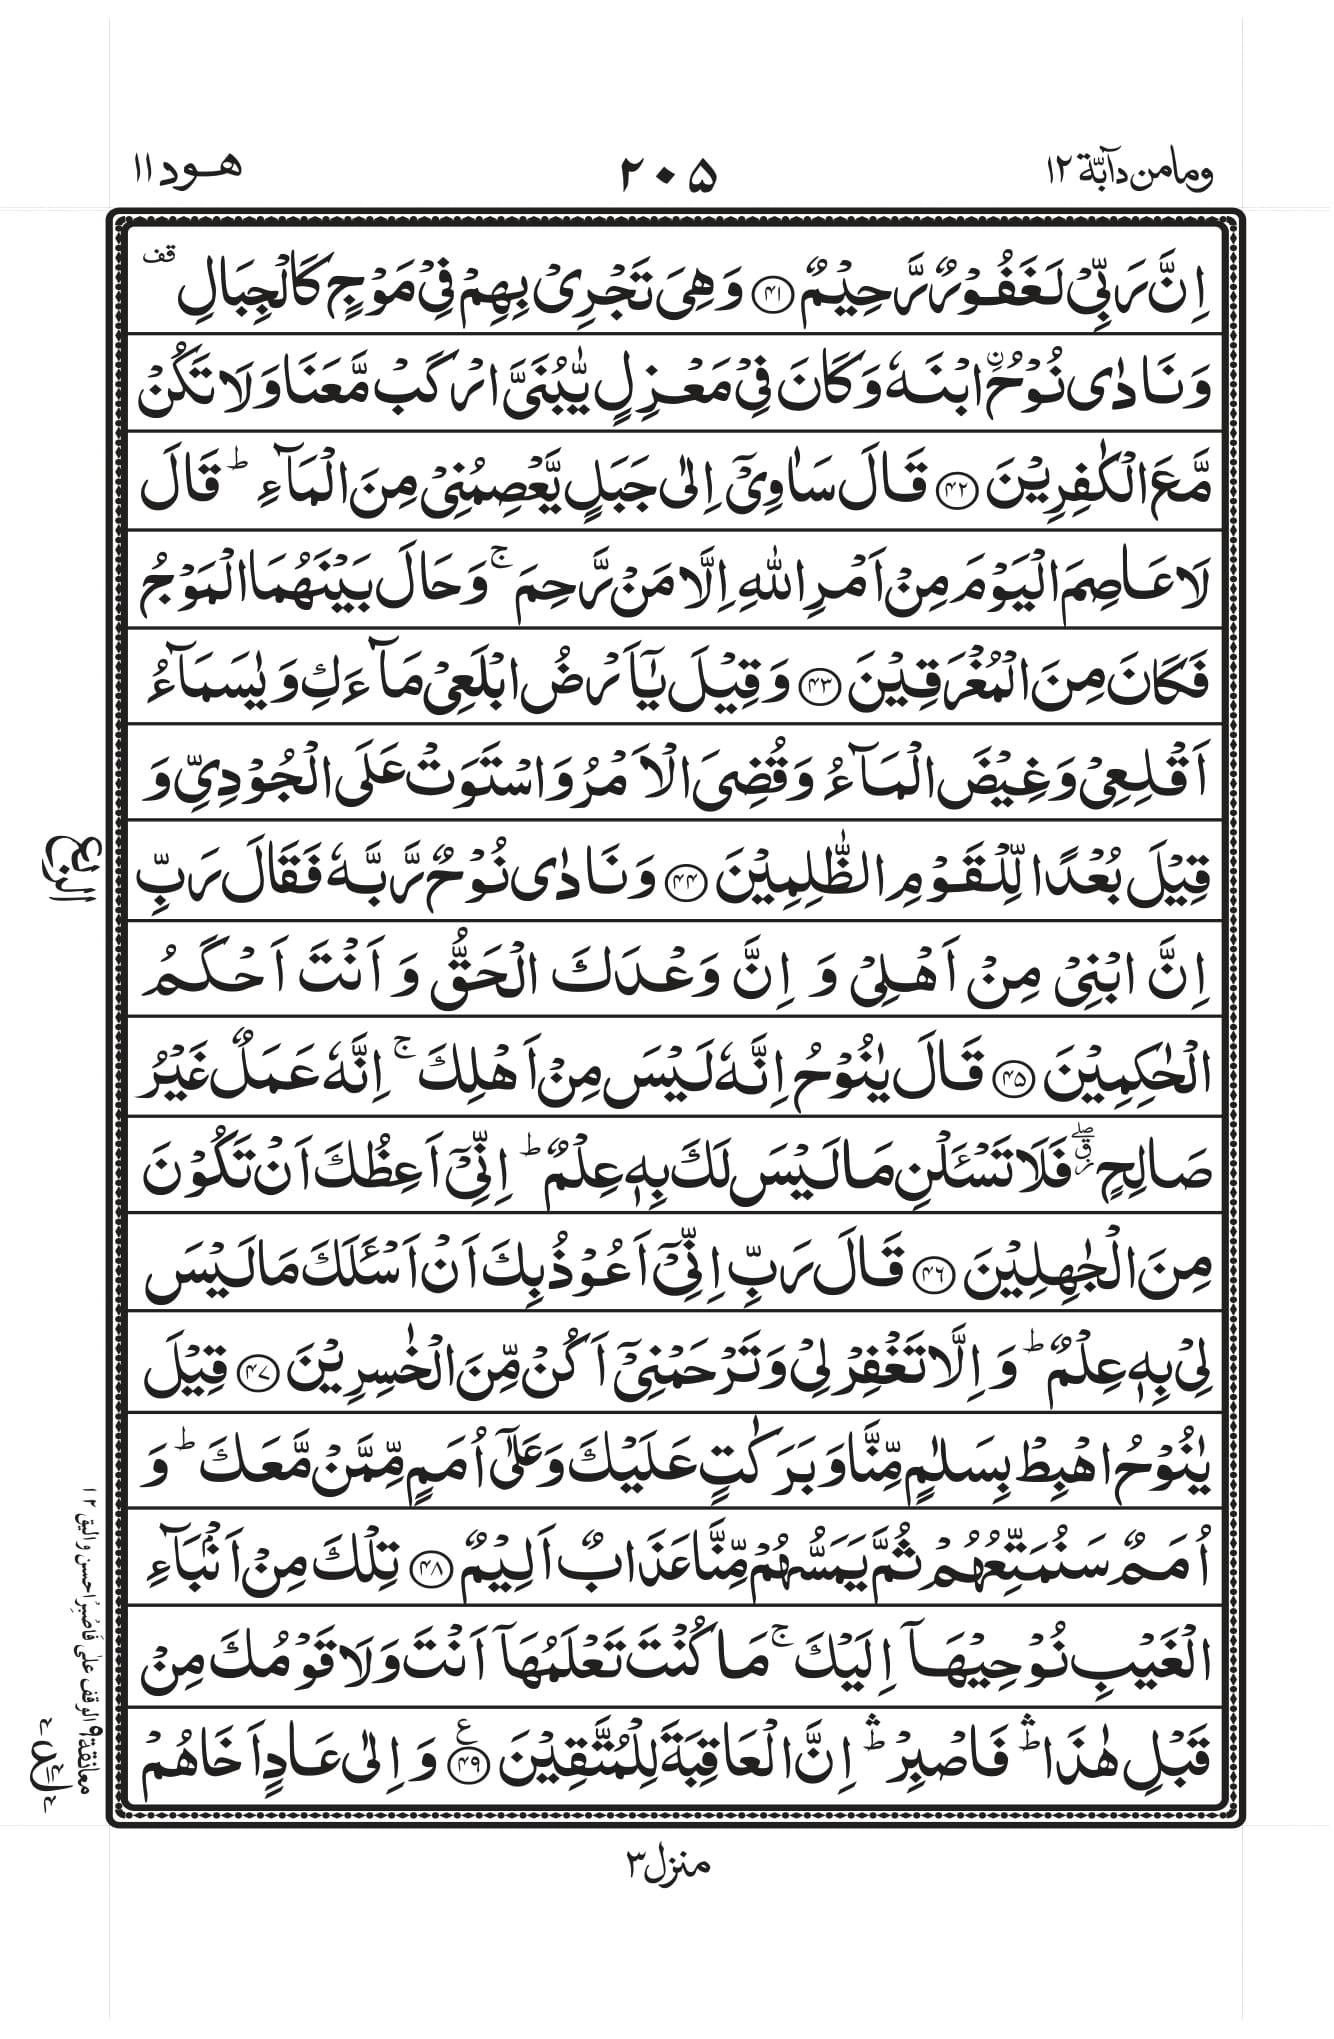 ومامن دآبّة ۱۲
۲۰۵
هود ۱۱
اِنَّ رَبِّیۡ لَغَفُوۡرٌ رَّحِیۡمٌ ﴿۴۱﴾ وَ هِیَ تَجۡرِیۡ بِهِمۡ فِیۡ مَوۡجٍ کَالۡجِبَالِ قف
وَ نَادٰی نُوۡحُ ۣ ابۡنَهٗ وَ کَانَ فِیۡ مَعۡزِلٍ یّٰبُنَیَّ ارۡکَبۡ مَّعَنَا وَ لَا تَکُنۡ
مَّعَ الۡکٰفِرِیۡنَ ﴿۴۲﴾ قَالَ سَاٰوِیۡۤ اِلٰی جَبَلٍ یَّعۡصِمُنِیۡ مِنَ الۡمَآءِ ؕ قَالَ
لَا عَاصِمَ الۡیَوۡمَ مِنۡ اَمۡرِ اللّٰهِ اِلَّا مَنۡ رَّحِمَ ۚ وَ حَالَ بَیۡنَهُمَا الۡمَوۡجُ
فَکَانَ مِنَ الۡمُغۡرَقِیۡنَ ﴿۴۳﴾ وَ قِیۡلَ یٰۤاَرۡضُ ابۡلَعِیۡ مَآءَکِ وَ یٰسَمَآءُ
اَقۡلِعِیۡ وَ غِیۡضَ الۡمَآءُ وَ قُضِیَ الۡاَمۡرُ وَ اسۡتَوَتۡ عَلَی الۡجُوۡدِیِّ وَ
قِیۡلَ بُعۡدًا لِّلۡقَوۡمِ الظّٰلِمِیۡنَ ﴿۴۴﴾ وَ نَادٰی نُوۡحٌ رَّبَّهٗ فَقَالَ رَبِّ
الربع
اِنَّ ابۡنِیۡ مِنۡ اَهۡلِیۡ وَ اِنَّ وَعۡدَکَ الۡحَقُّ وَ اَنۡتَ اَحۡکَمُ
الۡحٰکِمِیۡنَ ﴿۴۵﴾ قَالَ یٰنُوۡحُ اِنَّهٗ لَیۡسَ مِنۡ اَهۡلِکَ ۚ اِنَّهٗ عَمَلٌ غَیۡرُ
صَالِحٍ ٭ۖ فَلَا تَسۡـَٔلۡنِ مَا لَیۡسَ لَکَ بِهٖ عِلۡمٌ ؕ اِنِّیۡۤ اَعِظُکَ اَنۡ تَکُوۡنَ
مِنَ الۡجٰهِلِیۡنَ ﴿۴۶﴾ قَالَ رَبِّ اِنِّیۡۤ اَعُوۡذُ بِکَ اَنۡ اَسۡـَٔلَکَ مَا لَیۡسَ
لِیۡ بِهٖ عِلۡمٌ ؕ وَ اِلَّا تَغۡفِرۡ لِیۡ وَ تَرۡحَمۡنِیۡۤ اَکُنۡ مِّنَ الۡخٰسِرِیۡنَ ﴿۴۷﴾ قِیۡلَ
یٰنُوۡحُ اهۡبِطۡ بِسَلٰمٍ مِّنَّا وَ بَرَکٰتٍ عَلَیۡکَ وَ عَلٰۤی اُمَمٍ مِّمَّنۡ مَّعَکَ ؕ وَ
اُمَمٌ سَنُمَتِّعُهُمۡ ثُمَّ یَمَسُّهُمۡ مِّنَّا عَذَابٌ اَلِیۡمٌ ﴿۴۸﴾ تِلۡکَ مِنۡ اَنۡۢبَآءِ
الۡغَیۡبِ نُوۡحِیۡهَاۤ اِلَیۡکَ ۚ مَا کُنۡتَ تَعۡلَمُهَاۤ اَنۡتَ وَ لَا قَوۡمُکَ مِنۡ
قَبۡلِ هٰذَا ؕۛ فَاصۡبِرۡ ؕۛ اِنَّ الۡعَاقِبَةَ لِلۡمُتَّقِیۡنَ ﴿۴۹﴾ وَ اِلٰی عَادٍ اَخَاهُمۡ
معانقة ۹ الوقف علی فَاصۡبِرۡ احسن والیق ۱۲
منزل ۳